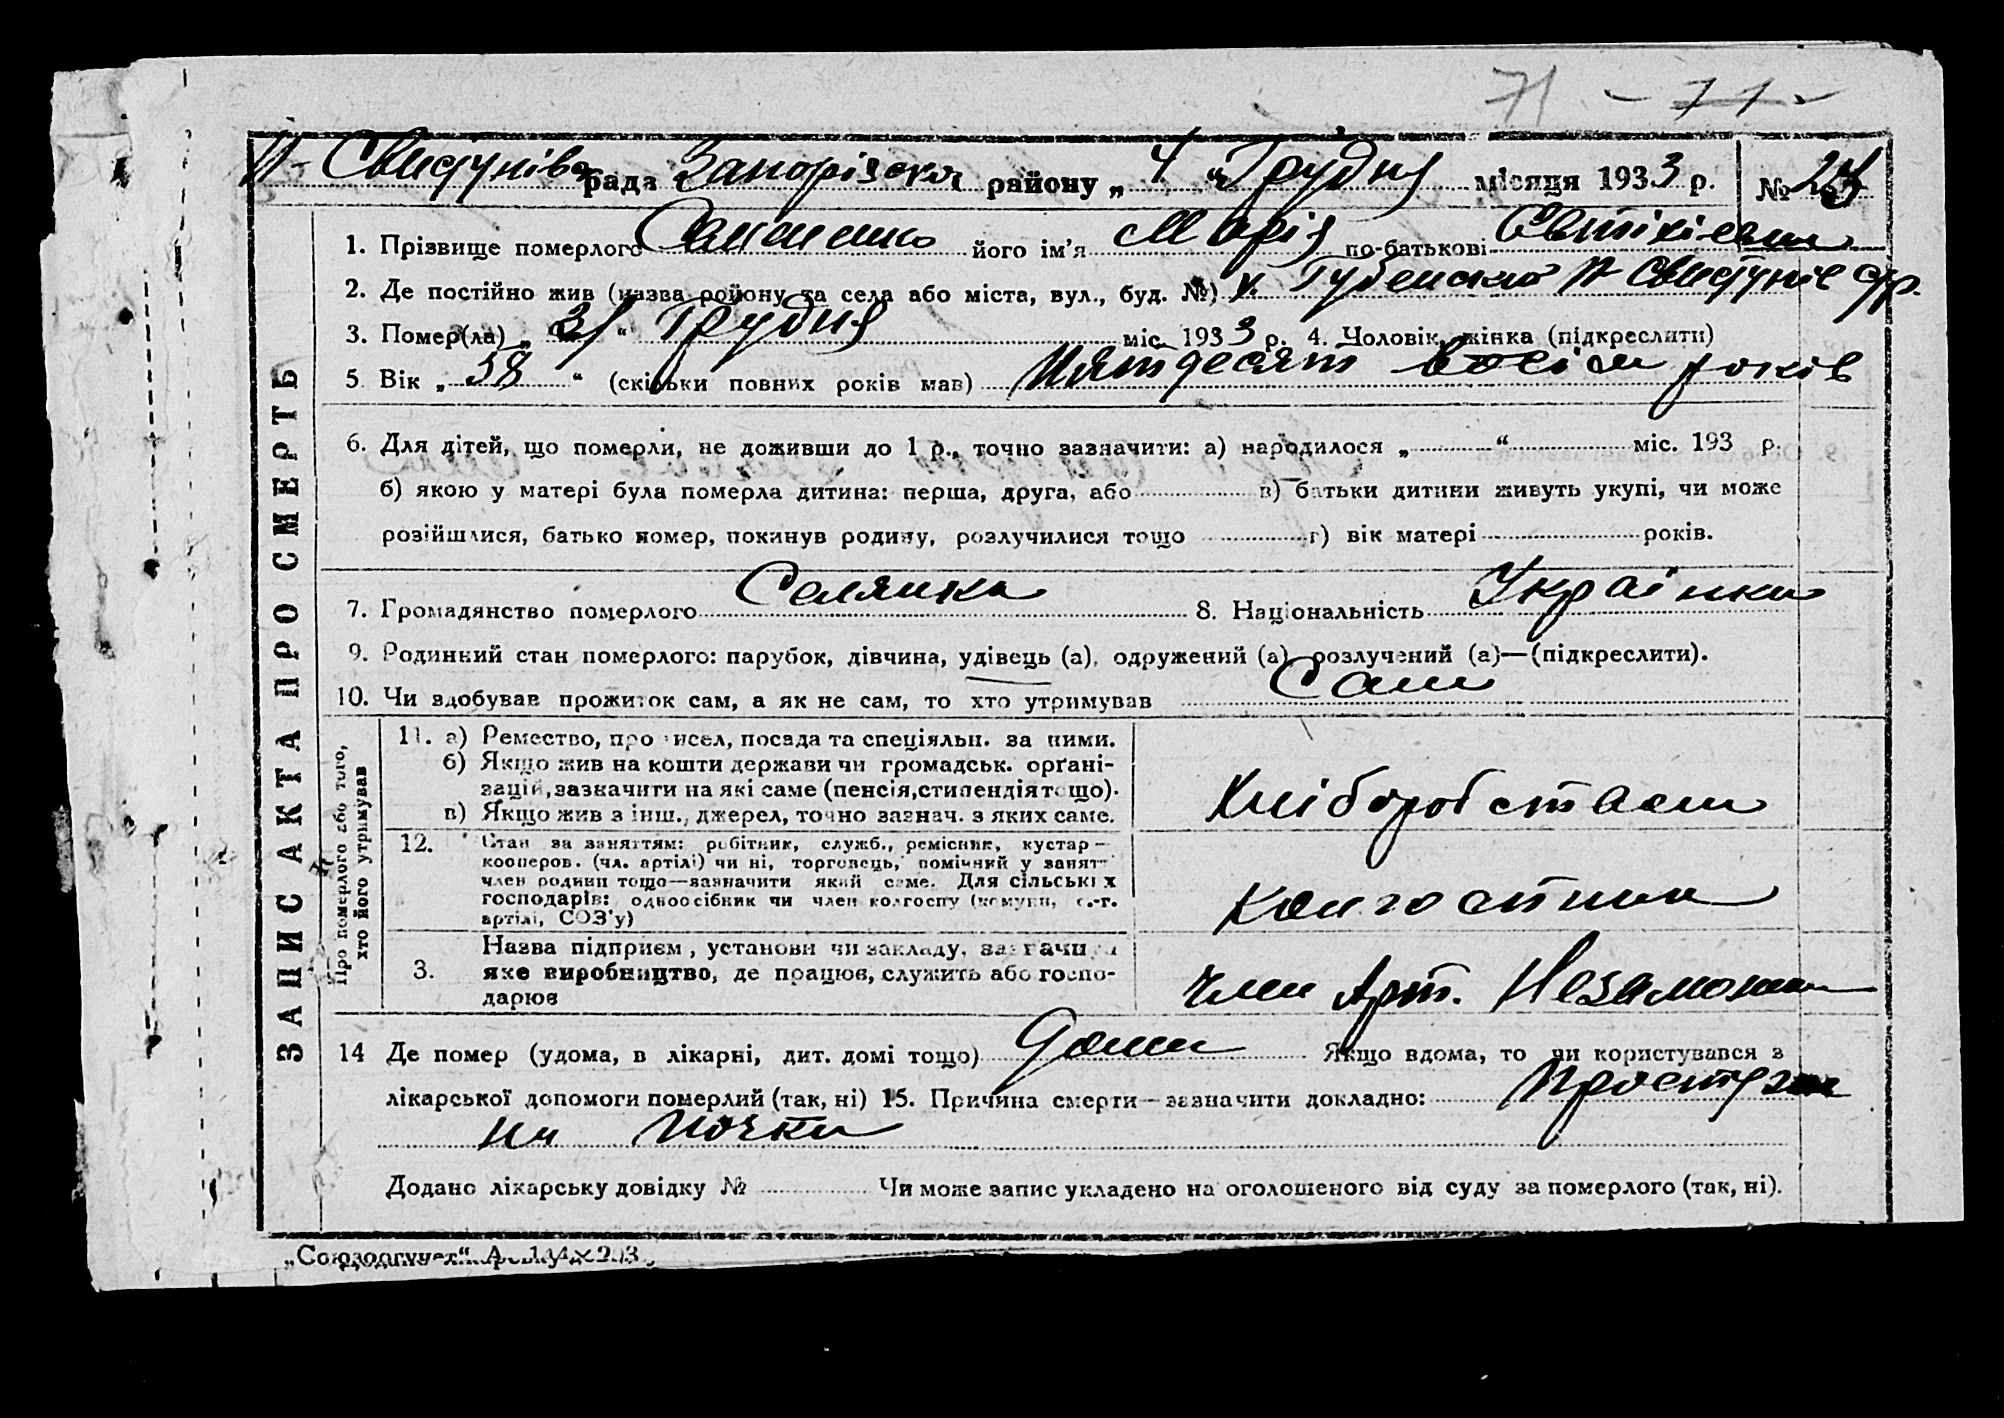 71 - 71 -
Н-Свистунівс рада Запорізска району „ 4 " Грудня місяця 1933 р. №
1. Прізвище померлого його ім'я Марія по-батькові
2. Де постійно жив (назва району та села або міста, вул., буд. №) х. Н Свистунів с/р.
3. Помер(ла) „ " Грудня міс. 1933 р. 4. Чоловік, жінка (підкреслити)
5 Вік „ 58 " (скільки повних років мав) Пятдесят восім років
6. Для дітей, що померли, не доживши до 1 р., точно зазначити: а) народилося „ " міс. 193 р.
б) якою у матері була померла дитина: перша, друга, або в) батьки дитини живуть укупі, чи може
розійшлися, батько помер, покинув родину, розлучилися тощо г) вік матері років.
7. Громадянство померлого Селянка 8. Національність Українка
9. Родинний стан померлого: парубок, дівчина, удівець (а), одружений (а), розлучений (а)—(підкреслити).
10. Чи здобував прожиток сам, а як не сам, то хто утримував Сам
ЗАПИС АКТА ПРО СМЕРТЬ
Про померлого або того,
хто його утримував
11. а) Ремество, промисел, посада та спеціяльн. за ними.
б) Якщо жив на кошти держави чи громадськ. орґані-
зацій, зазначити на які саме (пенсія, стипендія тощо).
в) Якщо жив з інш., джерел, точно зазнач. з яких саме.
Хліборобством
12. Стан за заняттям: робітник, служб., ремісник, кустар—
кооперов. (чл. артілі) чи ні, торговець, помічний у занят—
член родини тощо—зазначити який саме. Для сільських
господарів: одноосібник чи член колгоспу (комуни, с.-г.
артілі, СОЗ'у)
Колгостник
3. Назва підприєм, установи чи закладу, зазначити
яке виробництво, де працює, служить або госпо-
дарює
член Арт. Незаможник
14 Де помер (удома, в лікарні, дит. домі тощо) Дома Якщо вдома, то чи користувався з
лікарської допомоги померлий (так, ні) 15. Причина смерти—зазначити докладно: Простуда
на почки
Додано лікарську довідку № Чи може запис укладено на оголошеного від суду за померлого (так, ні).